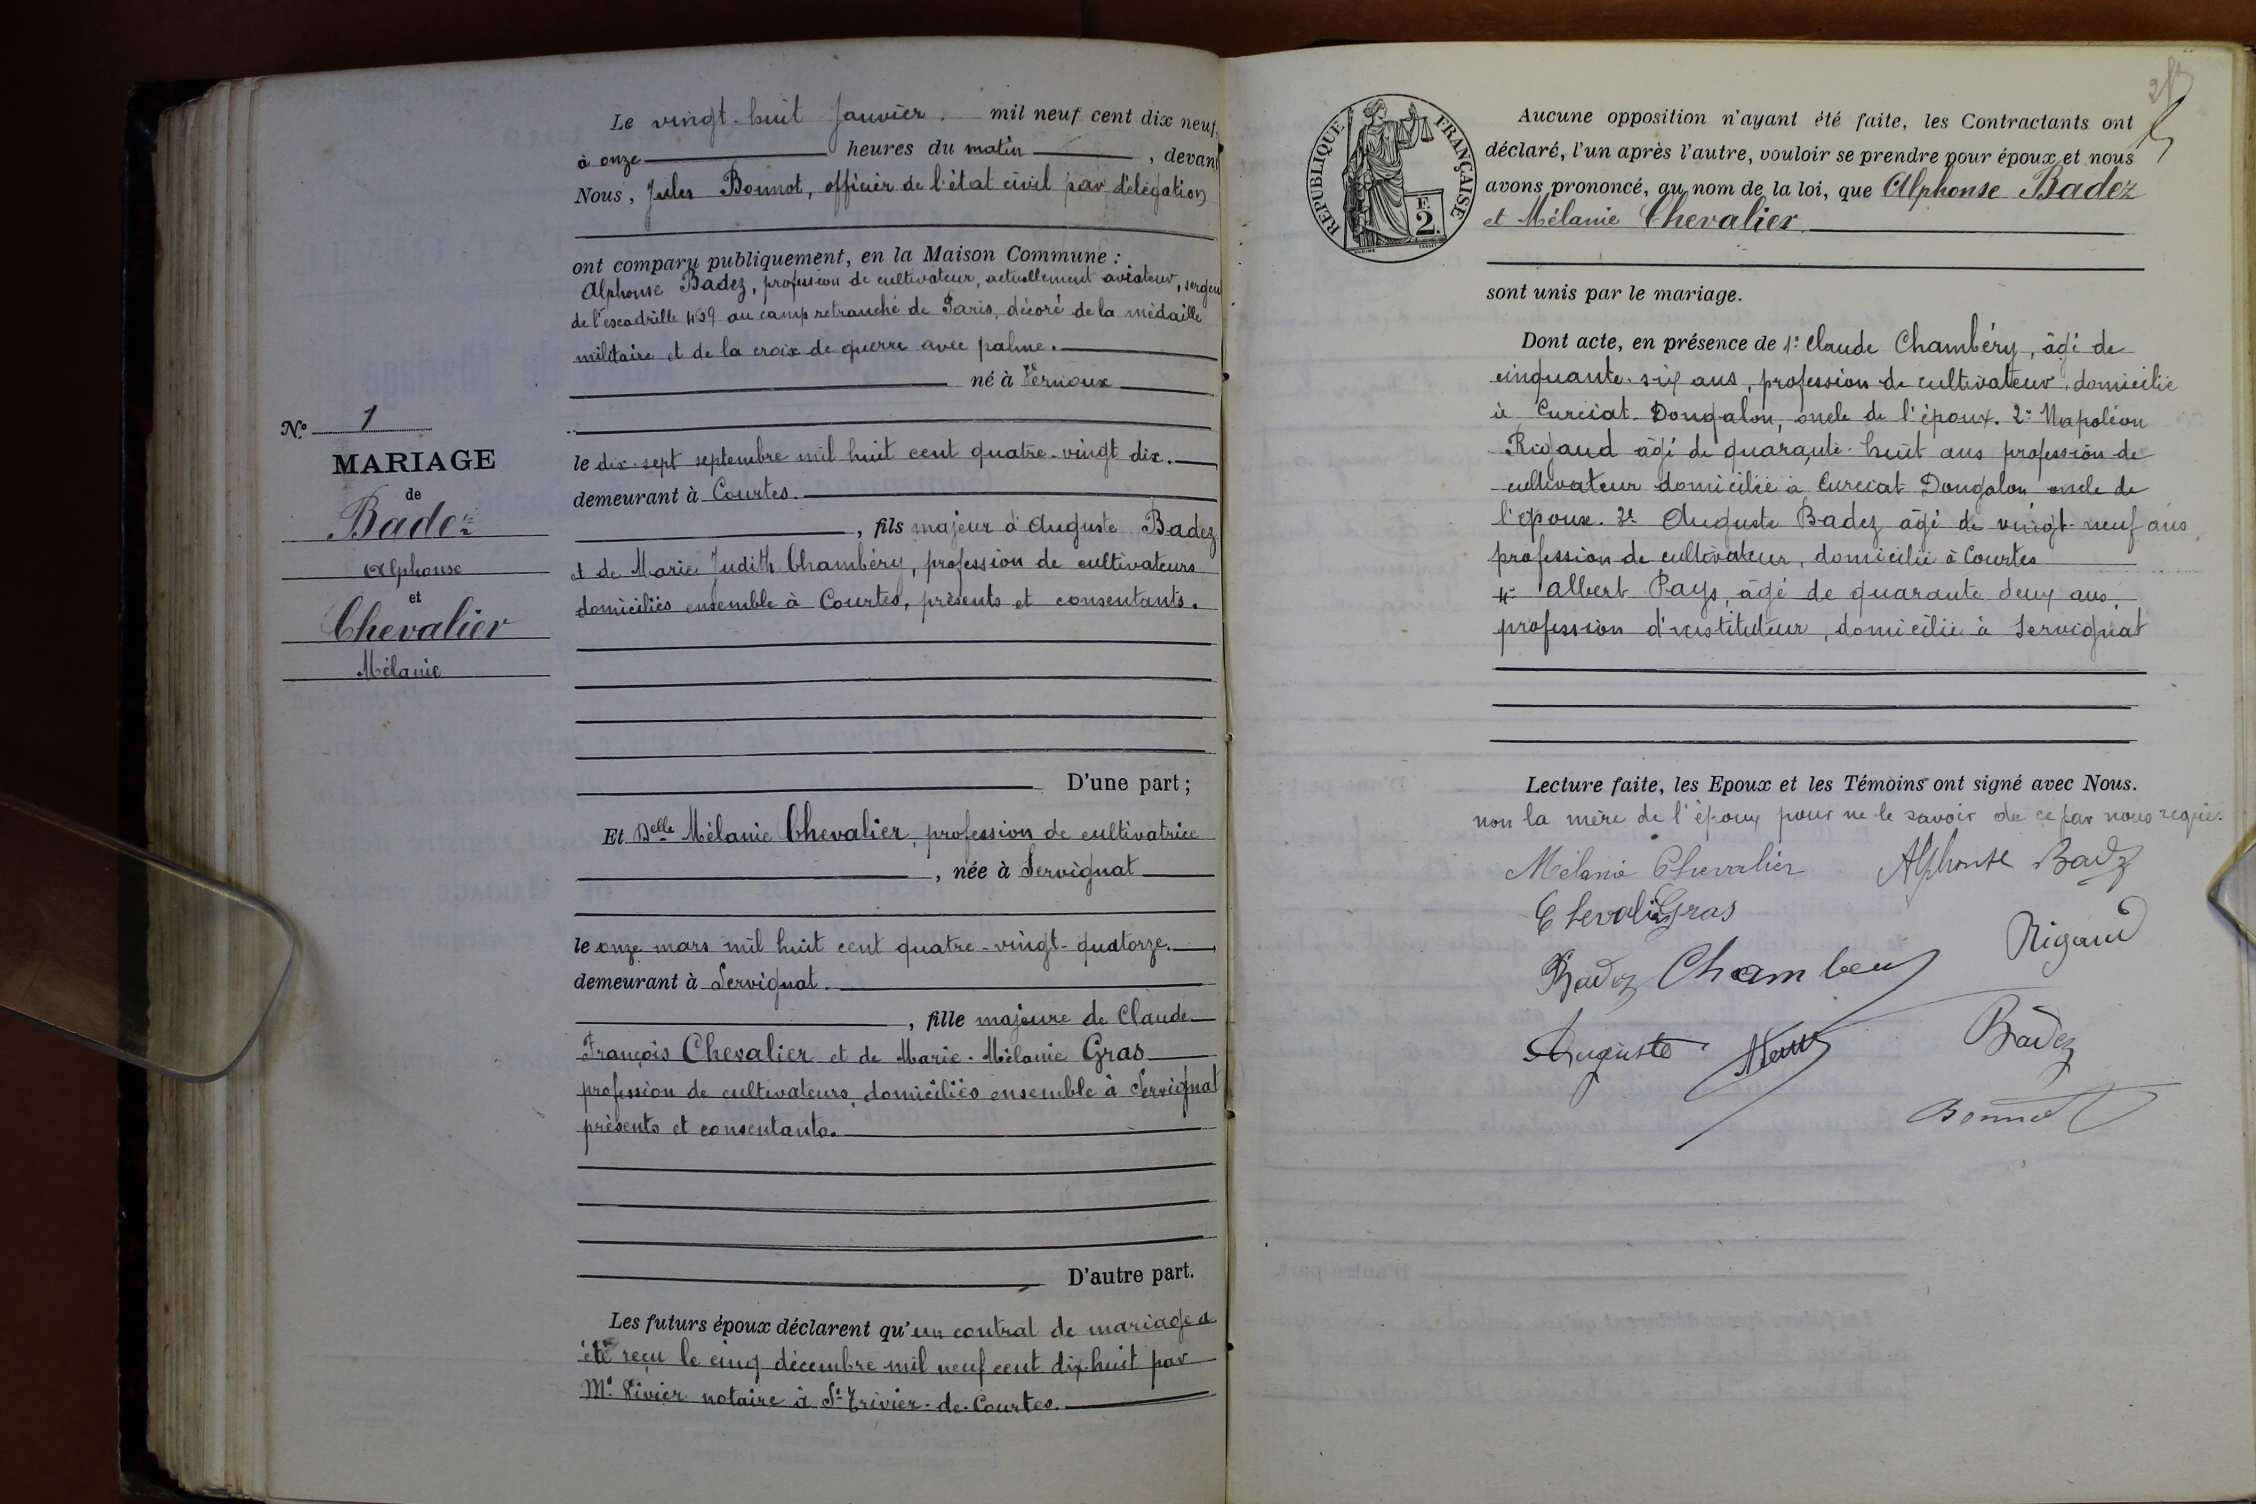 Le vingt-huit Janvier. mil neuf cent dix neuf,
à onze heures du matin, devant
Nous, Jules Bonnot, officier de l'état civil par délégation
ont comparu publiquement, en la Maison Commune :
Alphonse Badez, profession de cultivateur, actuellement aviateur, sergen
de l'escadrille 459 au camp retranché de Paris, décoré de la médaille
militaire et de la croix de guerre avec palme.
né à Vernoux
No 1
MARIAGE
de
Badez
Alphonse
et
Chevalier
Mélanie
le dix-sept septembre mil huit cent quatre-vingt dix.
demeurant à Courtes.
, fils majeur d'Auguste Badez
et de Marie Judith Chambéry, profession de cultivateurs
domiciliés ensemble à Courtes, présents et consentants.
D'une part;
Et Delle Mélanie Chevalier, profession de cultivatrice
, née à Servignat
le onze mars mil huit cent quatre-vingt-quatorze.
demeurant à Servignat.
, fille majeure de Claude
François Chevalier et de Marie-Mélanie Gras
profession de cultivateurs, domiciliés ensemble à Servignat
présents et consentants.
D'autre part.
Les futurs époux déclarent qu'un contrat de mariage a
été reçu le cinq décembre mil neuf cent dix-huit par
Me Vivier notaire à St-Trivier-de-Courtes.
RÉPUBLIQUE FRANÇAISE
F.
2.
Aucune opposition n'ayant été faite, les Contractants ont
déclaré, l'un après l'autre, vouloir se prendre pour époux et nous
avons prononcé, au nom de la loi, que Alphonse Badez
et Mélanie Chevalier
sont unis par le mariage.
Dont acte, en présence de 1° Claude Chambéry, âgé de
cinquante-six ans, profession de cultivateur, domicilié
à Curciat-Dongalon, oncle de l'époux. 2° Napoléon
Rigaud âgé de quarante-huit ans profession de
cultivateur domicilié à Curciat Dongalon oncle de
l'époux. 3° Auguste Badez âgé de vingt-neuf ans
profession de cultivateur, domicilié à Courtes
4° Albert Pays, âgé de quarante deux ans,
profession d'instituteur, domicilié à Servignat
Lecture faite, les Epoux et les Témoins ont signé avec Nous.
non la mère de l'époux pour ne le savoir de ce par nous requis.
Mélanie Chevalier Alphonse Badez
Chevalier Gras
Rigaud
Badez Chambery
Auguste
Badez
Bonnot